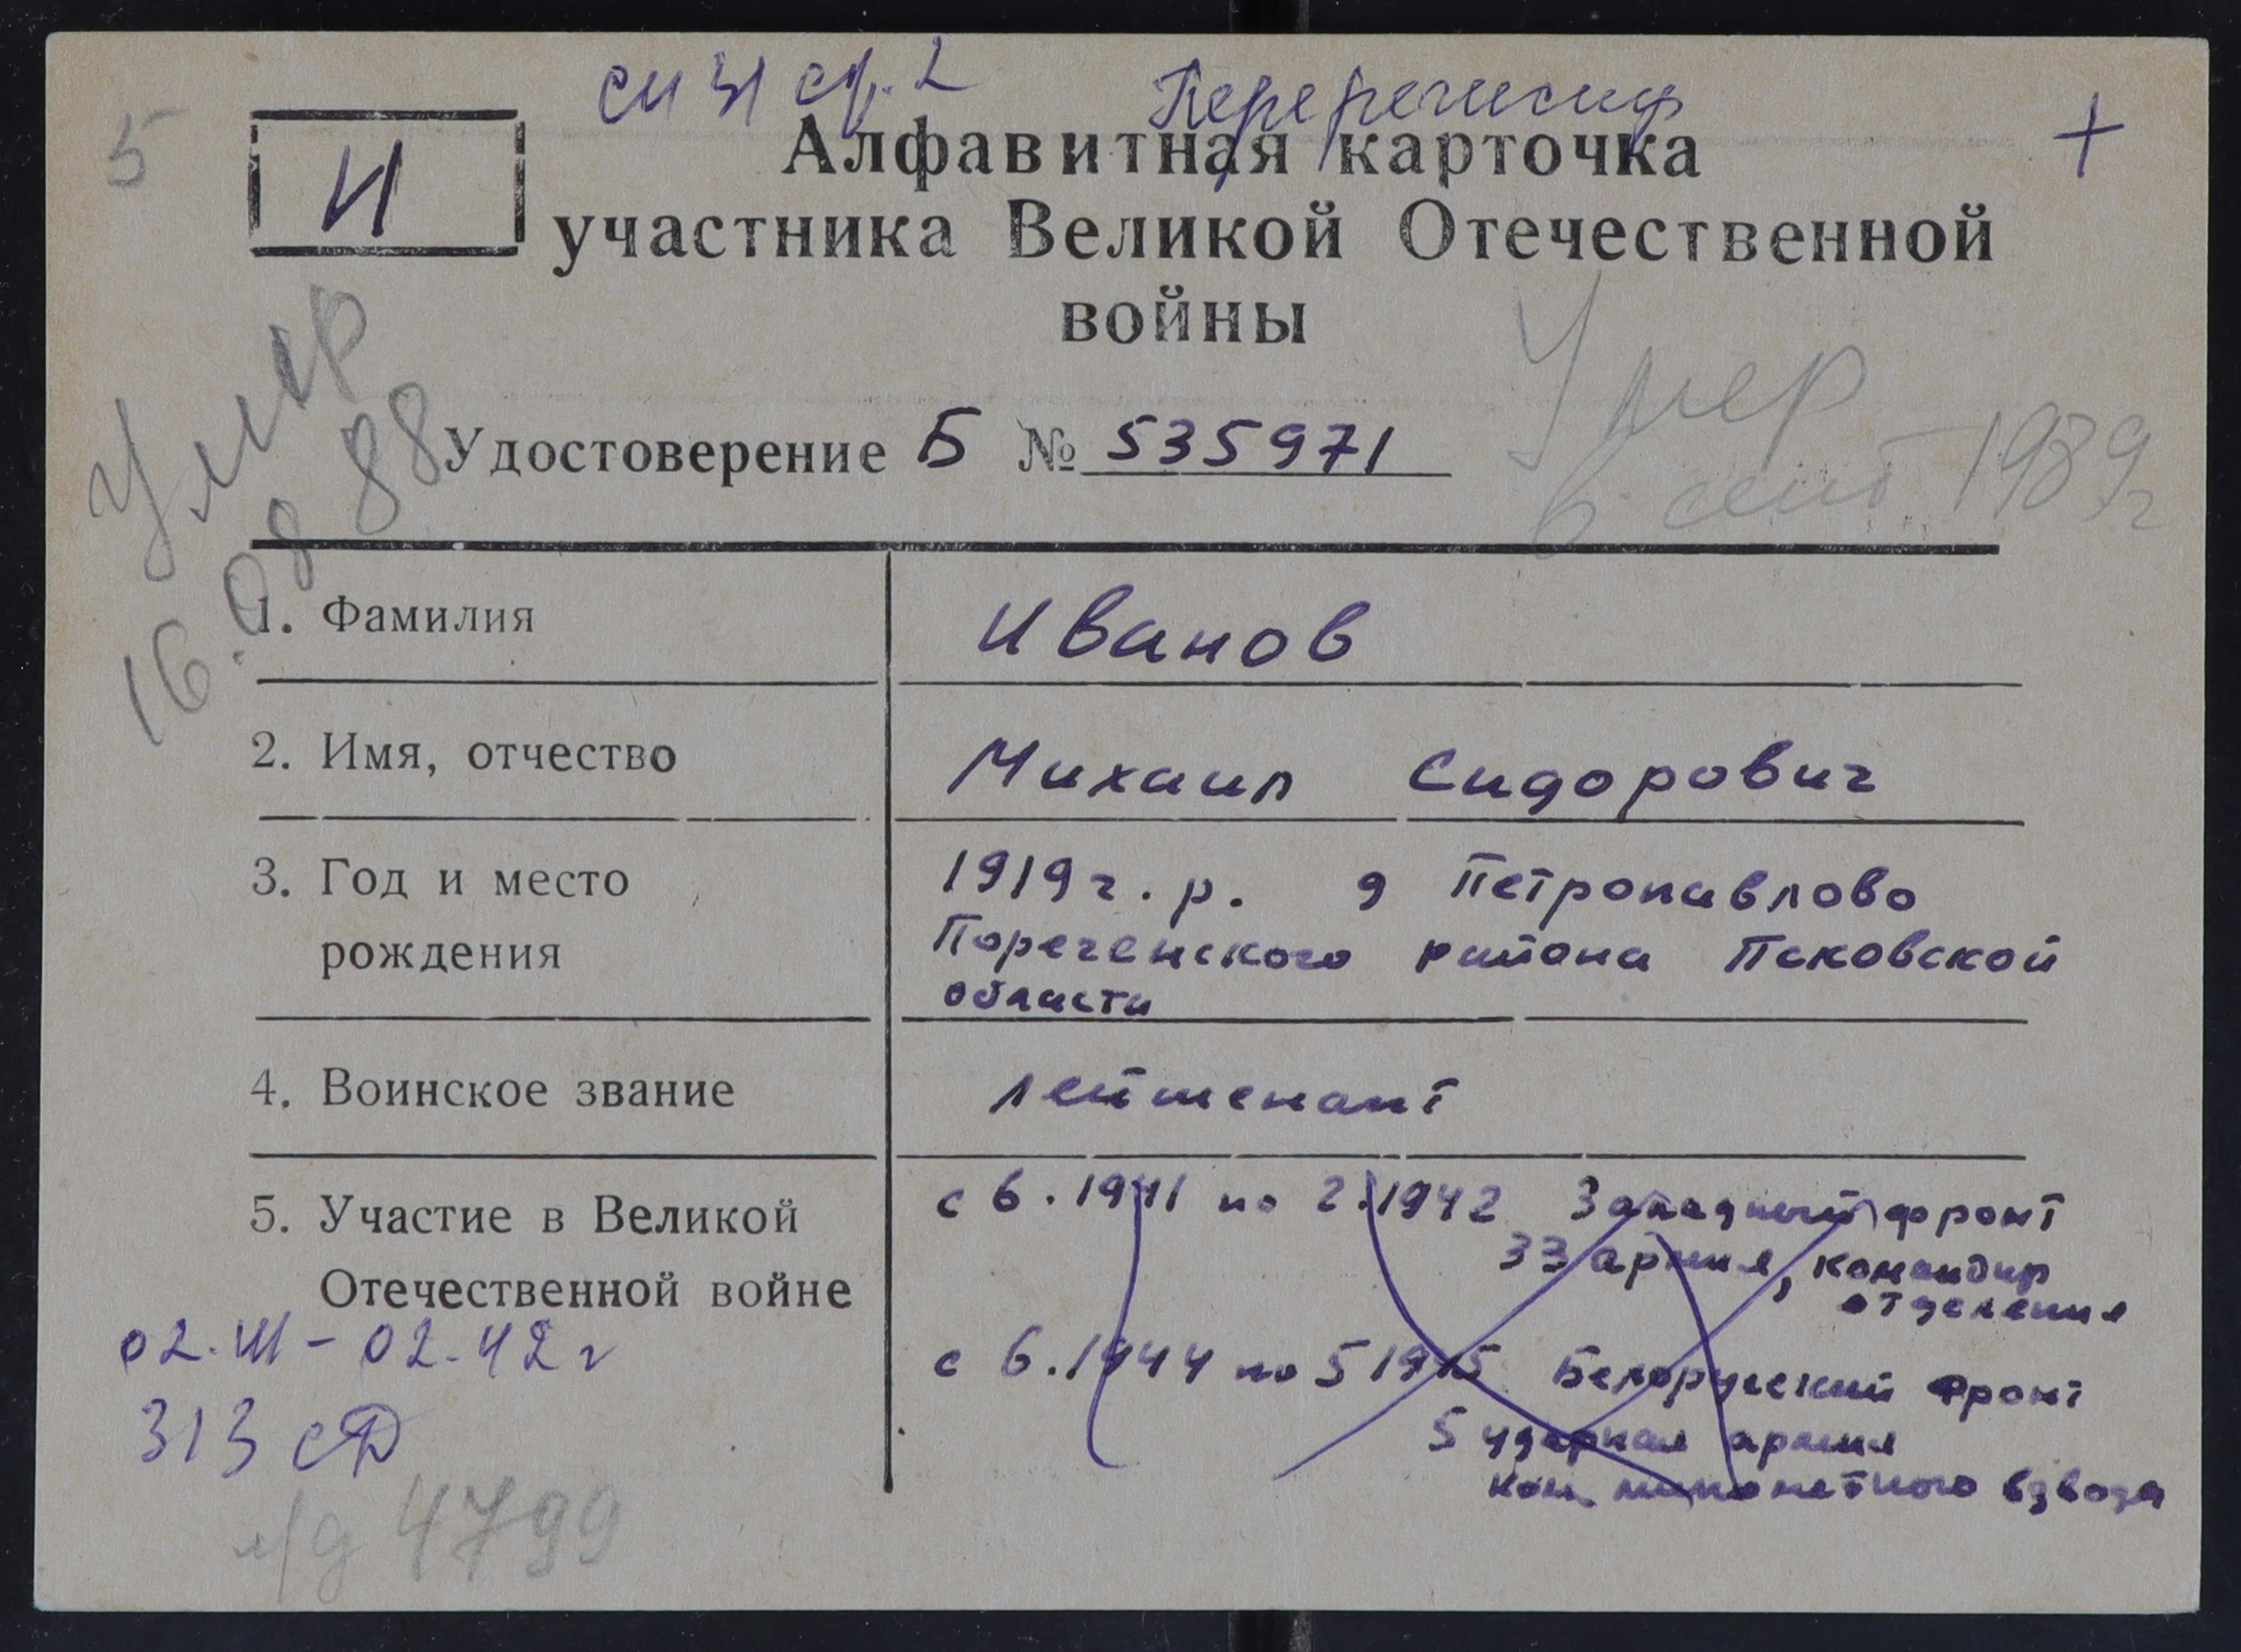 5
И
+
Алфавитная карточка
участника Великой Отечественной
войны
Умер
16.08 88
Умер
6 сент 1989 г
Удостоверение Б № 535971
1. Фамилия Иванов
2. Имя, отчество Михаил Сидорович
3. Год и место рождения
1919 г. р. д Петропавлово
Пореченского района Псковской
области
4. Воинское звание лейтенант
5. Участие в Великой
Отечественной войне
с 6.1941 по 2.1942 Западный фронт
33 армия, командир
отделения
с 6.1944 по 5 1945 Белорусский фронт
5 ударная армия
ком. минометного взвода
02.41 - 02.42 г
313 СД
л/д 4799